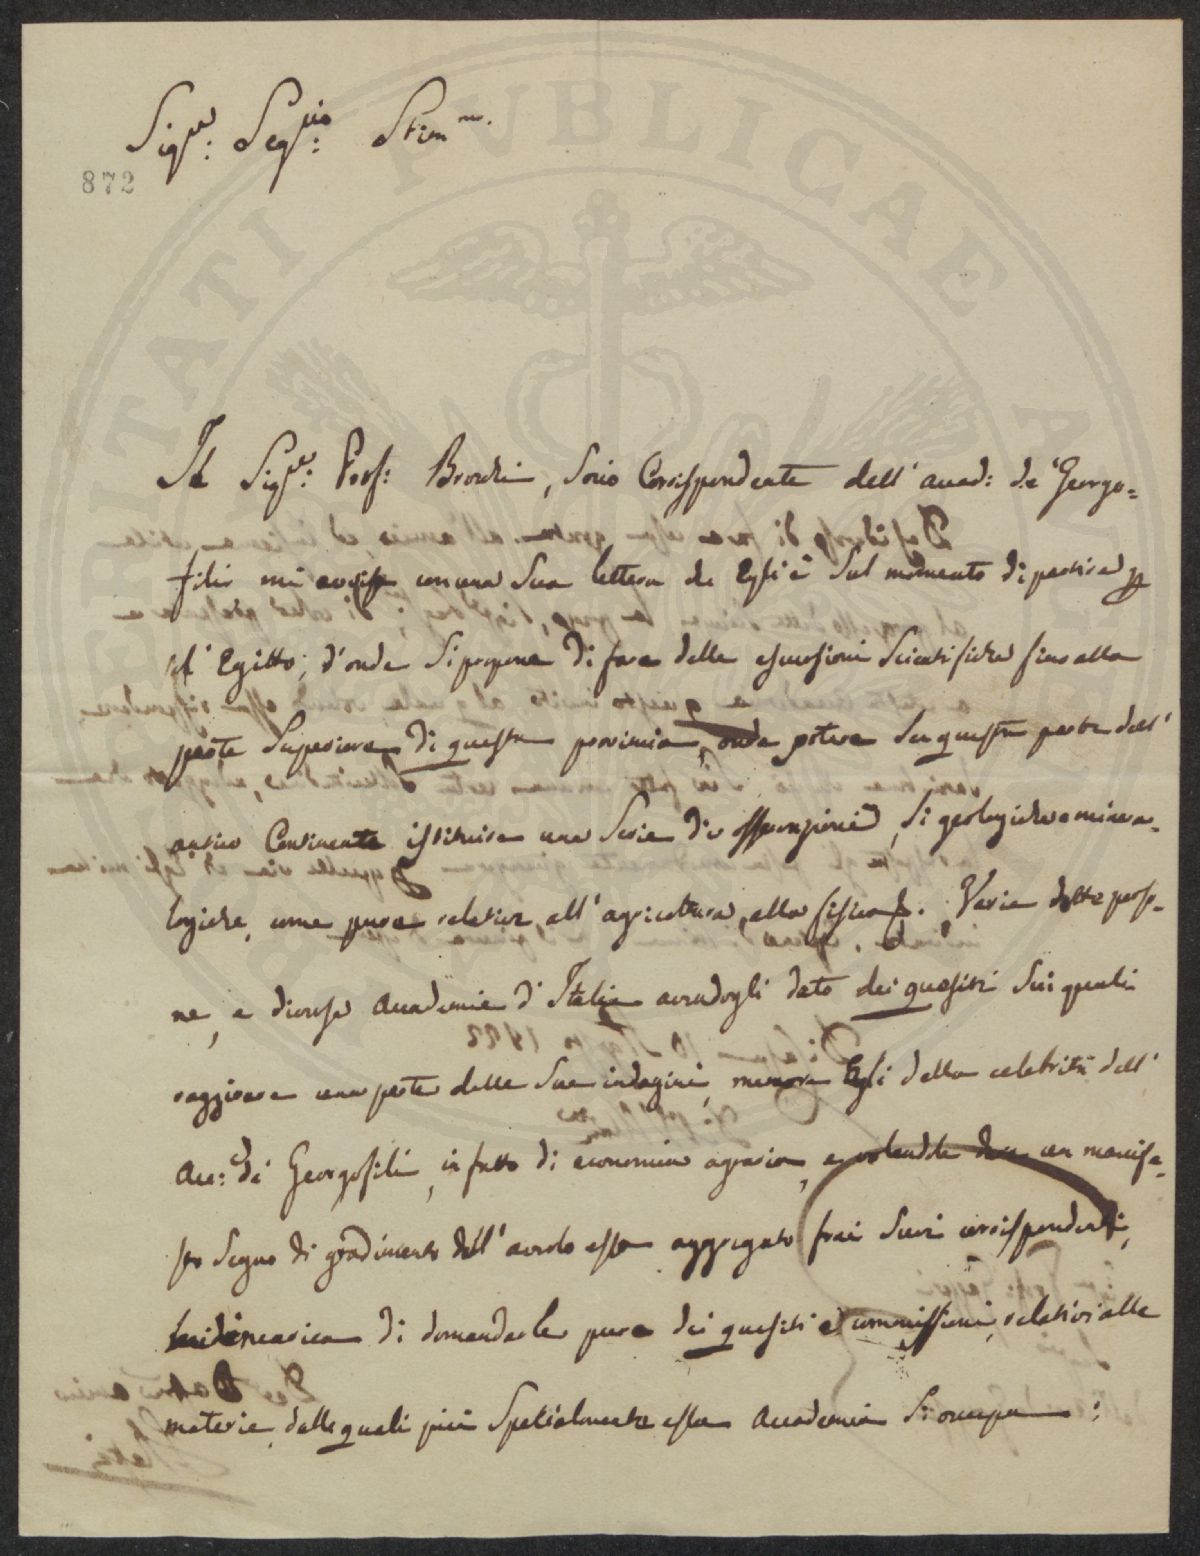 Sigre: Segrio: Stimmo.
872
Il Sigre: Profs: Brocchi, Socio Corrispondente dell' accad: de' Georgo=
fili mi avvisa con una sua lettera che Egli è sul momento di partire p
l' Egitto; d'onde si propone di fare delle escursioni scientifiche fino alla
parte superiore di questa provincia, onde potere su questa parte dell'
antico Continente istituire una serie di osservazioni, sì geologiche e minera-
logiche, come pure relative all' agricoltura, alla fisica. Varie dotte perso-
ne, e diverse Accademie d' Italia avendogli dato dei quesiti sui quali
raggirare una parte delle sue indagini, memore Egli della celebrità dell'
Acc: de' Georgofili, in fatto di economia agraria, e volendole dare un manife-
sto segno di gradimento dell' averlo essa aggregato frai suoi corrispondenti,
incarica di domandarle pure dei quesiti e commissioni, relativi alle
materie, delle quali più spezialmente essa Accademia si occupa :